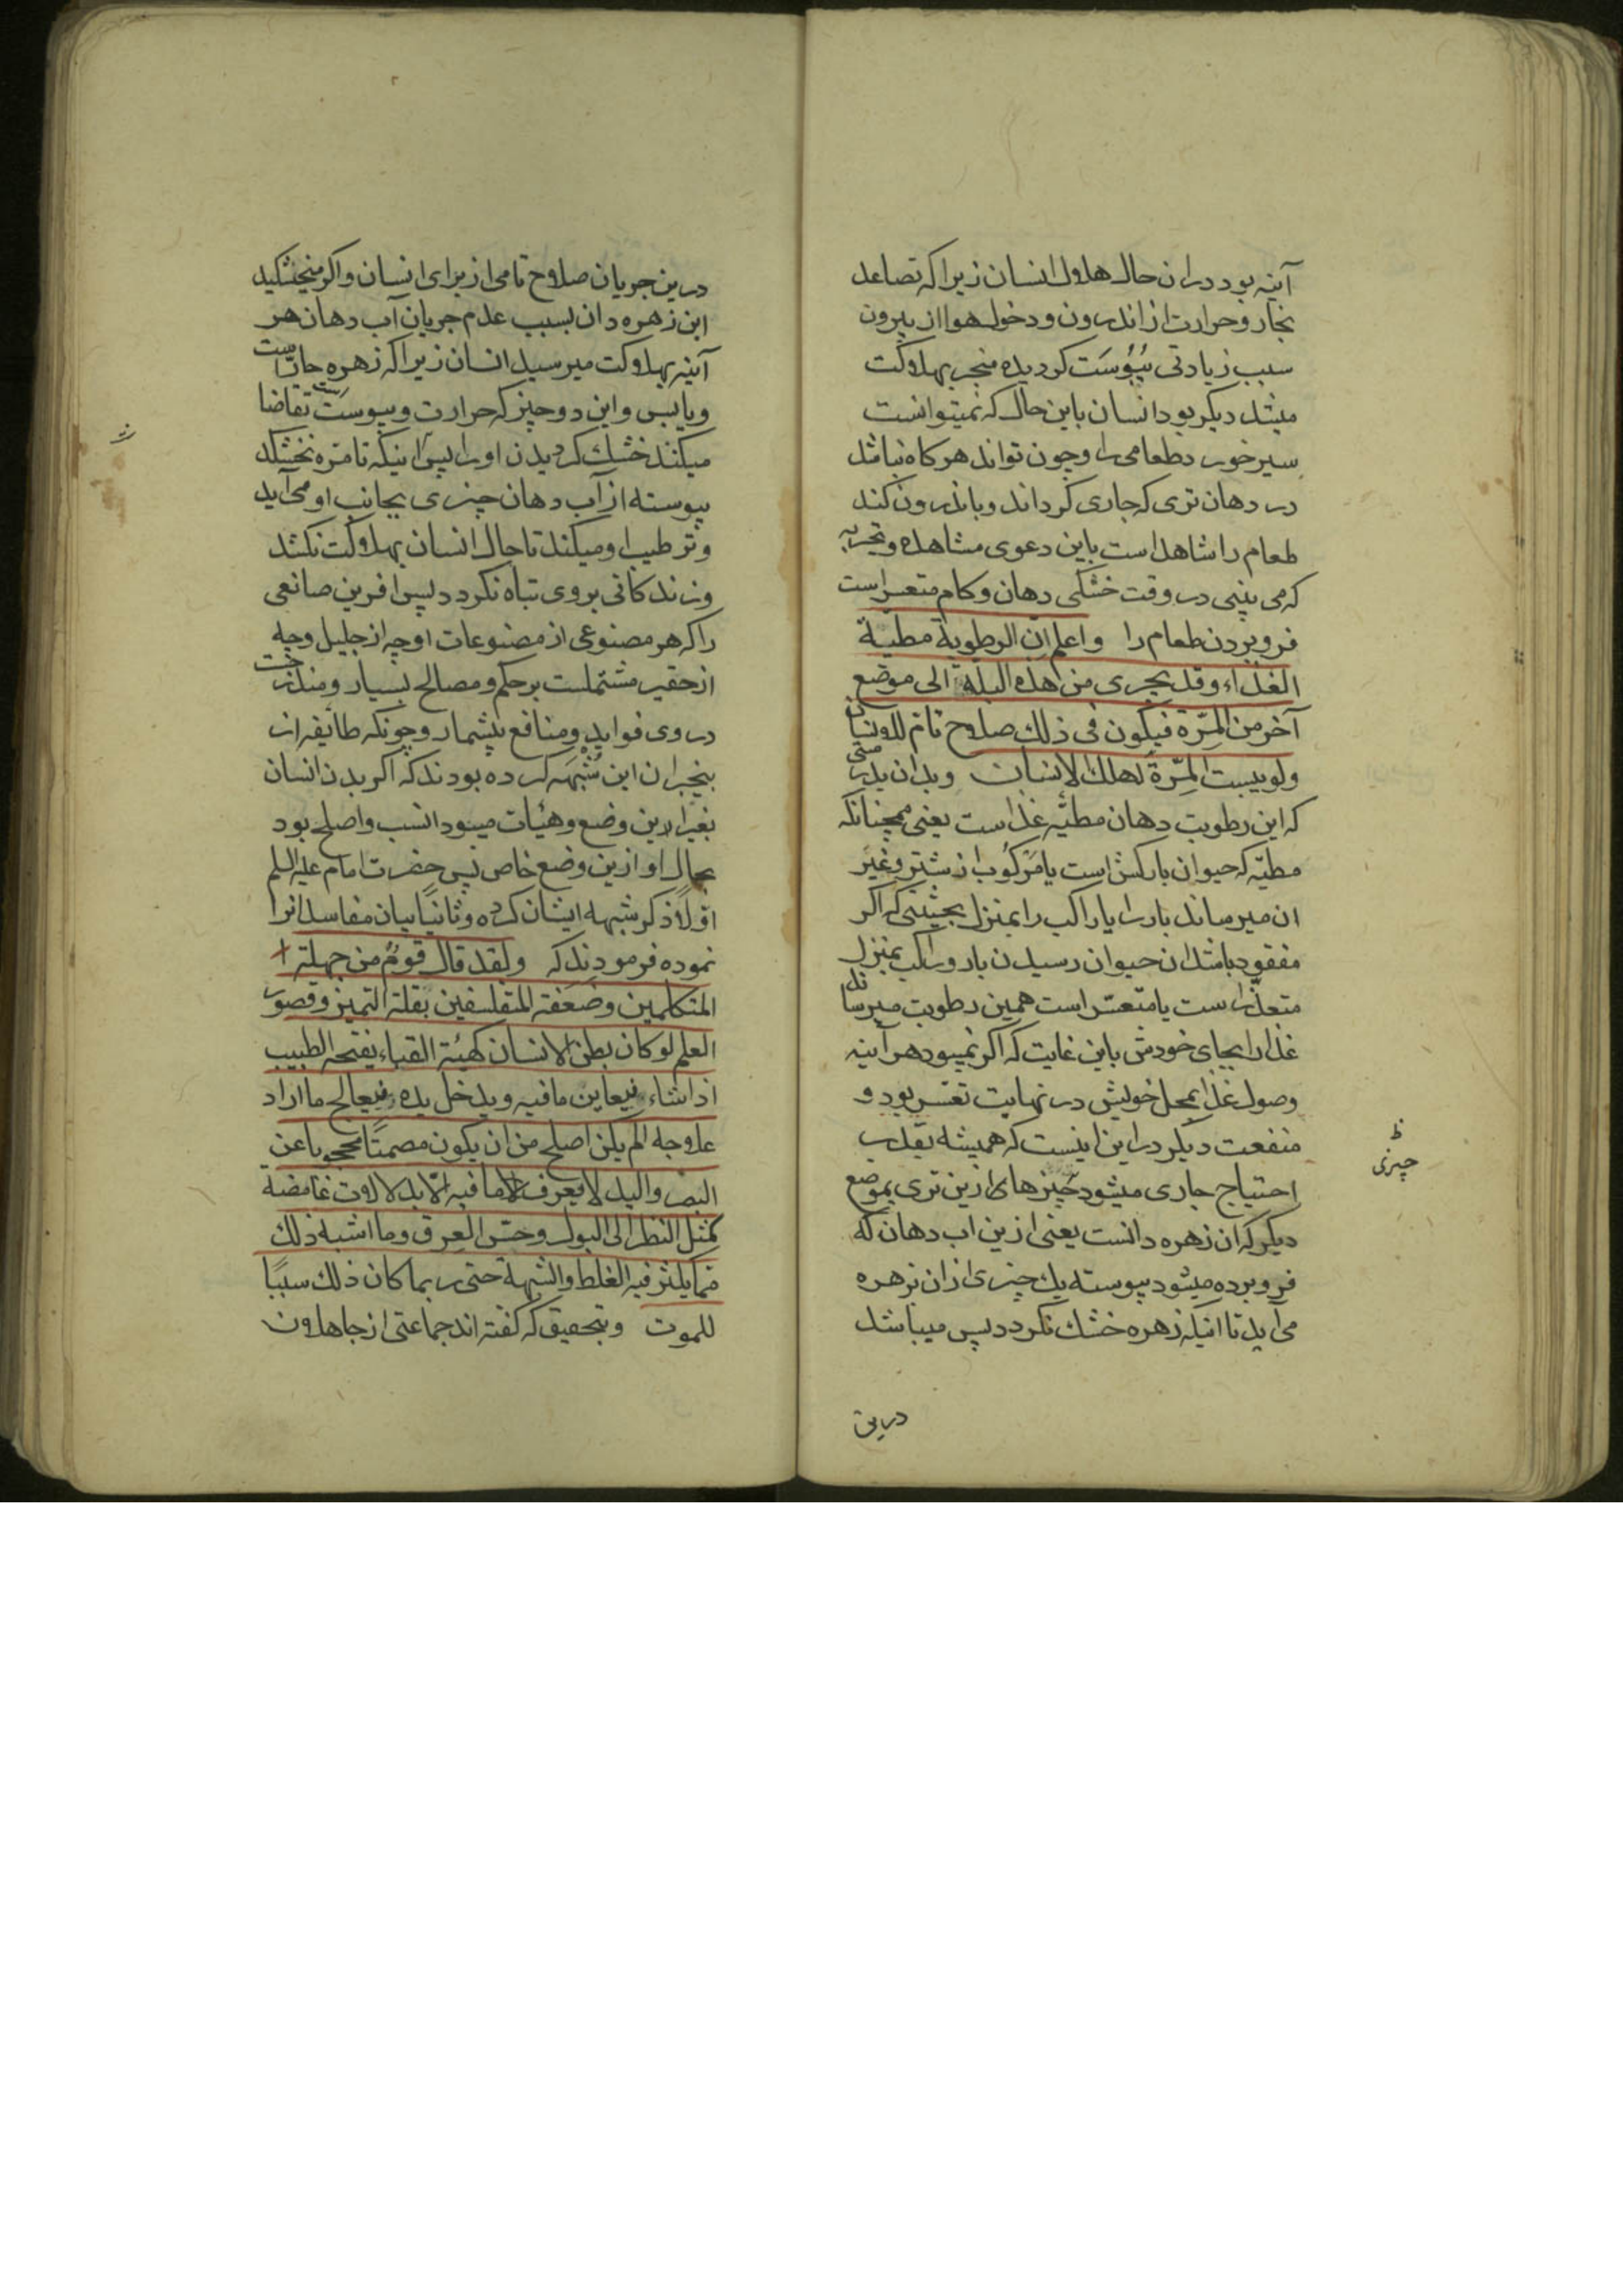 آینه بود دران حال هلاک انسان زیرا که تصاعد
بخار و حرارت از اندرون و دخول هوا از بیرون
سبب زیادتی یُبُوسَت کردیده منجر بهلاکت
میشد دیکر بود انسان باین حال که نمیتوانست
سیر خورد طعامی را و چون تواند هر کاه نباشد
در دهان تری که جاری کرداند و باندرون کند
طعام را شاهد است باین دعوی مشاهده و تجربه
که می بینی در وقت خشکی دهان و کام متعسر است
فرو بردن طعام را واعلم ان الرطوبة مطیّة
الغذاء وقد یجری من هذه البلة الی موضع
آخر من المِرّة فیکون فی ذلك صلاح تام للانسان
ولو یبست المِرّة لهلك الانسان و بدان بدرستی
که این رطوبت دهان مطیّه غذا ست یعنی همچنانکه
مطیّه که حیوان بارکش است یا مَرکُوب از شتر و غیر
ان میرساند بار را یا راکب را بمنزل بحیثیتی که اکر
مفقود باشد ان حیوان رسیدن بار و راکب بمنزل
متعذّر است یا متعسّر است همین رطوبت میرساند
غذا را بجای خودش باین غایت که اکر نمیبود هر آینه
وصول غذا بمحل خویش در نهایت تعسّر بود و
منفعت دیکر در این اینست که همیشه بقدر
احتیاج جاری میشود چیزها از این تری بموضع
دیکر که ان زهره دانست یعنی ازین اب دهان که
فرو برده میشود پیوسته یك چیزی ازان بزهره
می اید تا اینکه زهره خشك نکردد پس میباشد
ظ
چیزی
درین
درین جریان صلاح تامی از برای انسان و اکر میخشکید
این زهره دان بسبب عدم جریان آب دهان هر
آینه بهلاکت میرسید انسان زیرا که زهره حار است
و یابس و این دو چیز که حرارت و یبوست است تقاضا
میکنند خشك کردیدن او را پس اینکه تا مرّه نخشکد
پیوسته از آب دهان چیزی بجانب او می آید
و ترطیب او میکند تا حال انسان بهلاکت نکشد
و زندکانی بروی تباه نکردد پس افرین صانعی
را که هر مصنوعی از مصنوعات او چه از جلیل و چه
از حقیر مشتملست بر حکم و مصالح بسیار و مندرجست
در وی فواید و منافع بیشمار و چونکه طایفه از
بیخبران این شُبْهَه کرده بودند که اکر بدن انسان
بغیر این وضع و هیأت میبود انسب و اصلح بود
بحال او ازین وضع خاص پس حضرت امام علیه السلم
اوّلاً ذکر شبهه ایشان کرده و ثانیًا بیان مفاسد انرا
نموده فرمودند که ولقد قال قومٌ من جهلة
المتکلمین وضعفة المتفلسفین بقلة التمیز وقصور
العلم لو کان بطن الانسان کهیئة القباء یفتحه الطبیب
اذا شاء فیعاین ما فیه ویدخل یده فیعالج ما اراد
علاجه الم یکن اصلح من ان یکون مصمتًا محجوبا عن
البصر والید لا یعرف ما فیه الّا بدلالات غامضة
کمثل النظر الی البول وحس العرق وما اشبه ذلك
مما یکثر فیه الغلط والشبهة حتی ربما کان ذلك سببًا
للموت و بتحقیق که کفته اند جماعتی از جاهلان